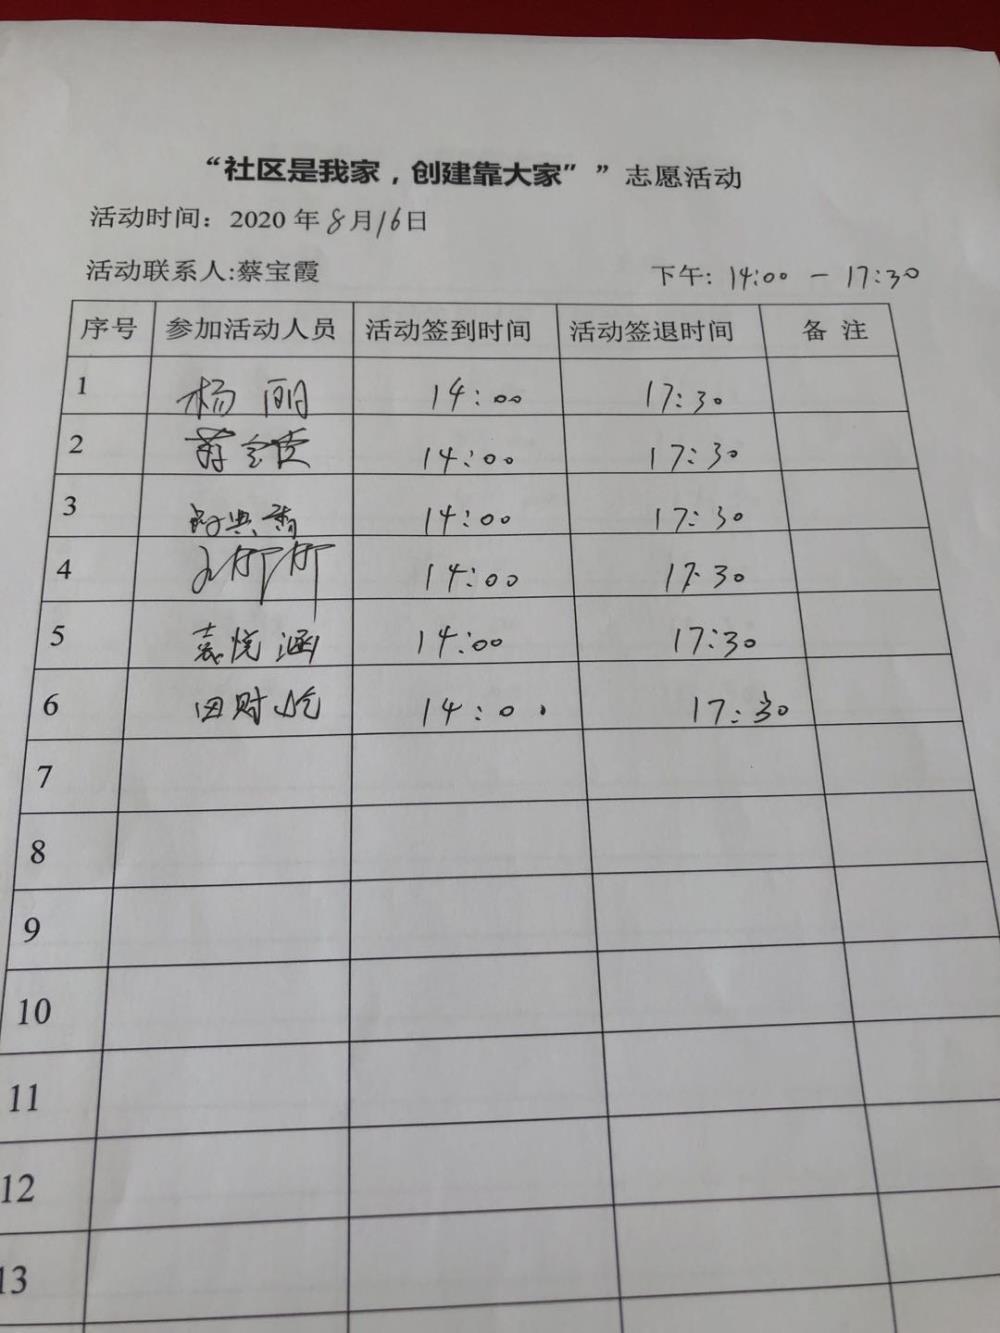 “社区是我家，创建靠大家””志愿活动
活动时间：2020年8月16日
活动联系人:蔡宝霞 下午：14:00 — 17:30
序号 参加活动人员 活动签到时间 活动签退时间 备 注
1 杨丽 14:00 17:30
2 14:00 17:30
3 14:00 17:30
4 14:00 17:30
5 袁悦涵 14:00 17:30
6 14:00 17:30
7
8
9
10
11
12
13